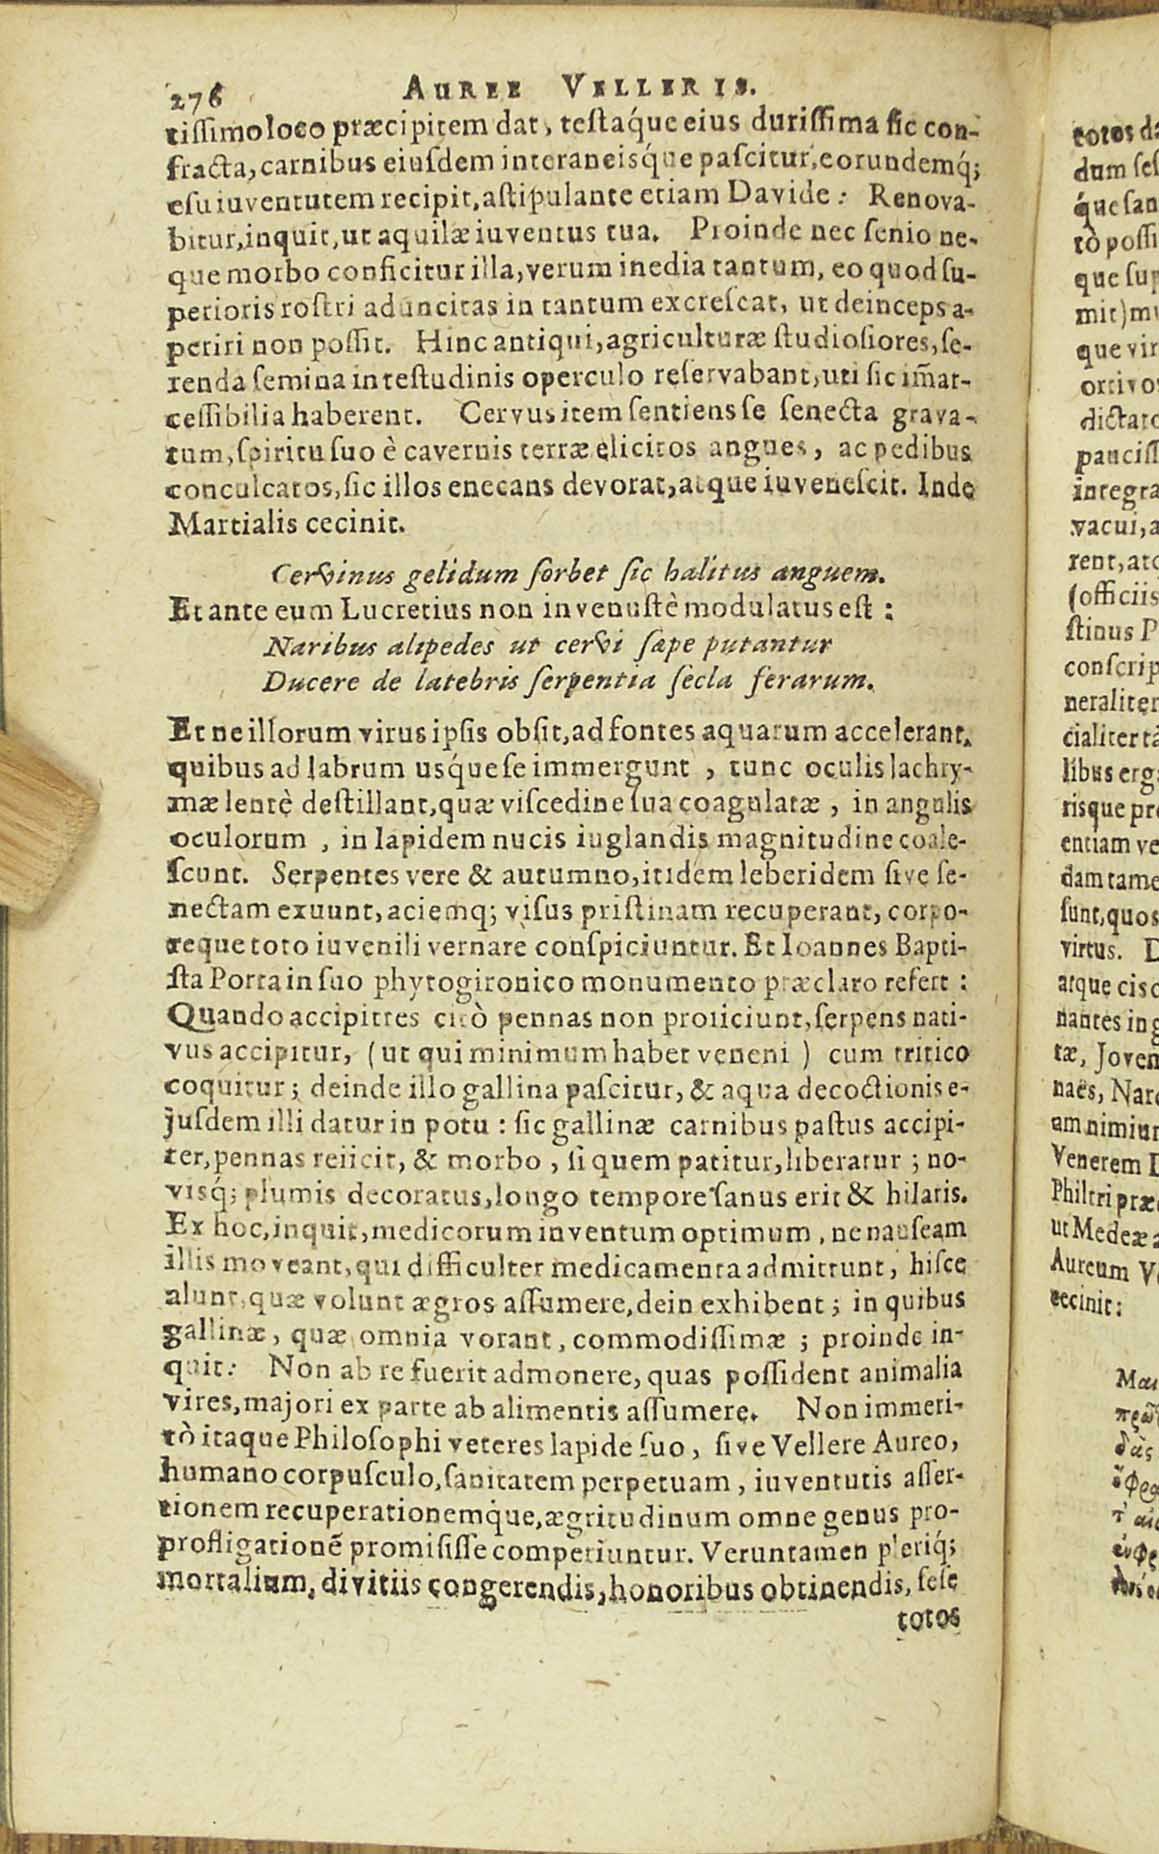 276 AUREE VELLERIS.
tissimo loco præcipitem dat, testáque eius durissima sic con-
fracta, carnibus eiusdem interaneisq́ue pascitur, eorundemq́;
esu iuventutem recipit, astipulante etiam Davide: Renova-
bitur, inquit, ut aquilæ iuventus tua. Proinde nec senio ne-
que morbo conficitur illa, verum inedia tantum, eo quod su-
perioris rostri aduncitas in tantum excrescat, ut deinceps a-
periri non possit. Hinc antiqui, agriculturæ studiosiores, se-
renda semina in testudinis operculo reservabant, uti sic im̃ar-
cessibilia haberent. Cervus item sentiens se senecta grava-
tum, spiritu suo è cavernis terræ elicitos angues, ac pedibus
conculcatos, sic illos enecans devorat, atque iuvenescit. Inde
Martialis cecinit.
Cervinus gelidum sorbet sic halitus anguem.
Et ante eum Lucretius non invenustè modulatus est:
Naribus alipedes ut cervi sæpe putantur
Ducere de latebris serpentia secla ferarum.
Et ne illorum virus ipsis obsit, ad fontes aquarum accelerant,
quibus ad labrum usq́ue se immergunt, tunc oculis lachry-
mæ lentè destillant, quæ viscedine sua coagulatæ, in angulis
oculorum, in lapidem nucis iuglandis magnitudine coale-
scunt. Serpentes vere & autumno, itidem leberidem sive se-
nectam exuunt, aciemq; visus pristinam recuperant, corpo-
reque toto iuvenili vernare conspiciuntur. Et Ioannes Bapti-
sta Porta in suo phytogironico monumento præclaro refert:
Quando accipitres citò pennas non proiiciunt, serpens nati-
vus accipitur, (ut qui minimum habet veneni) cum tritico
coquitur; deinde illo gallina pascitur, & aqua decoctionis e-
jusdem illi datur in potu: sic gallinæ carnibus pastus accipi-
ter, pennas reiicit, & morbo, si quem patitur, liberatur; no-
visq́; plumis decoratus, longo tempore sanus erit & hilaris.
Ex hoc, inquit, medicorum inventum optimum, ne nauseam
illis moveant, qui difficulter medicamenta admittunt, hisce
alunt, quæ volunt ægros assumere, dein exhibent; in quibus
gallinæ, quæ omnia vorant, commodissimæ; proinde in-
quit: Non ab re fuerit admonere, quas possident animalia
vires, majori ex parte ab alimentis assumere. Non immeri-
tò itaque Philosophi veteres lapide suo, sive Vellere Aureo,
humano corpusculo, sanitatem perpetuam, iuventutis asser-
tionem recuperationemq́ue, ægritudinum omne genus pro-
profligationẽ promisisse comperiuntur. Veruntamen pleriq́;
mortalium, divitiis congerendis, honoribus obtinendis, sese
totos
totos
dum
que
tò possi
que
mit)
que
ortivo
dictato
pauciss
integra
vacui, a
rent,
(officiis
stinus P
conscrip
neraliter
cialiter
libus erg
risque
entiam ve
dam tame
sunt, quos
virtus.
atque
nantes in
tæ, Joven
naës,
am nimiur
Venerem
Philtri
ut Medeæ
Aureum
cecinit: